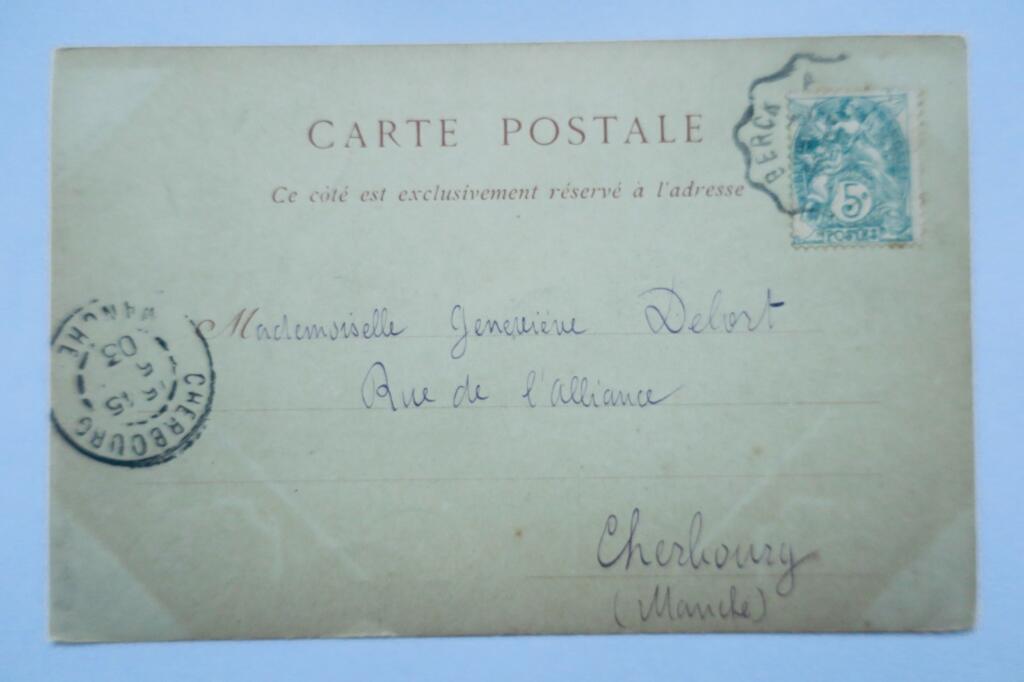 CARTE POSTALE
Ce côté est exclusivement réservé à l'adresse
BERCK
5c
POSTES
Mademoiselle Geneviève Delort
Rue de l'Alliance
Cherbourg
(Manche)
CHERBOURG
MANCHE
15
03